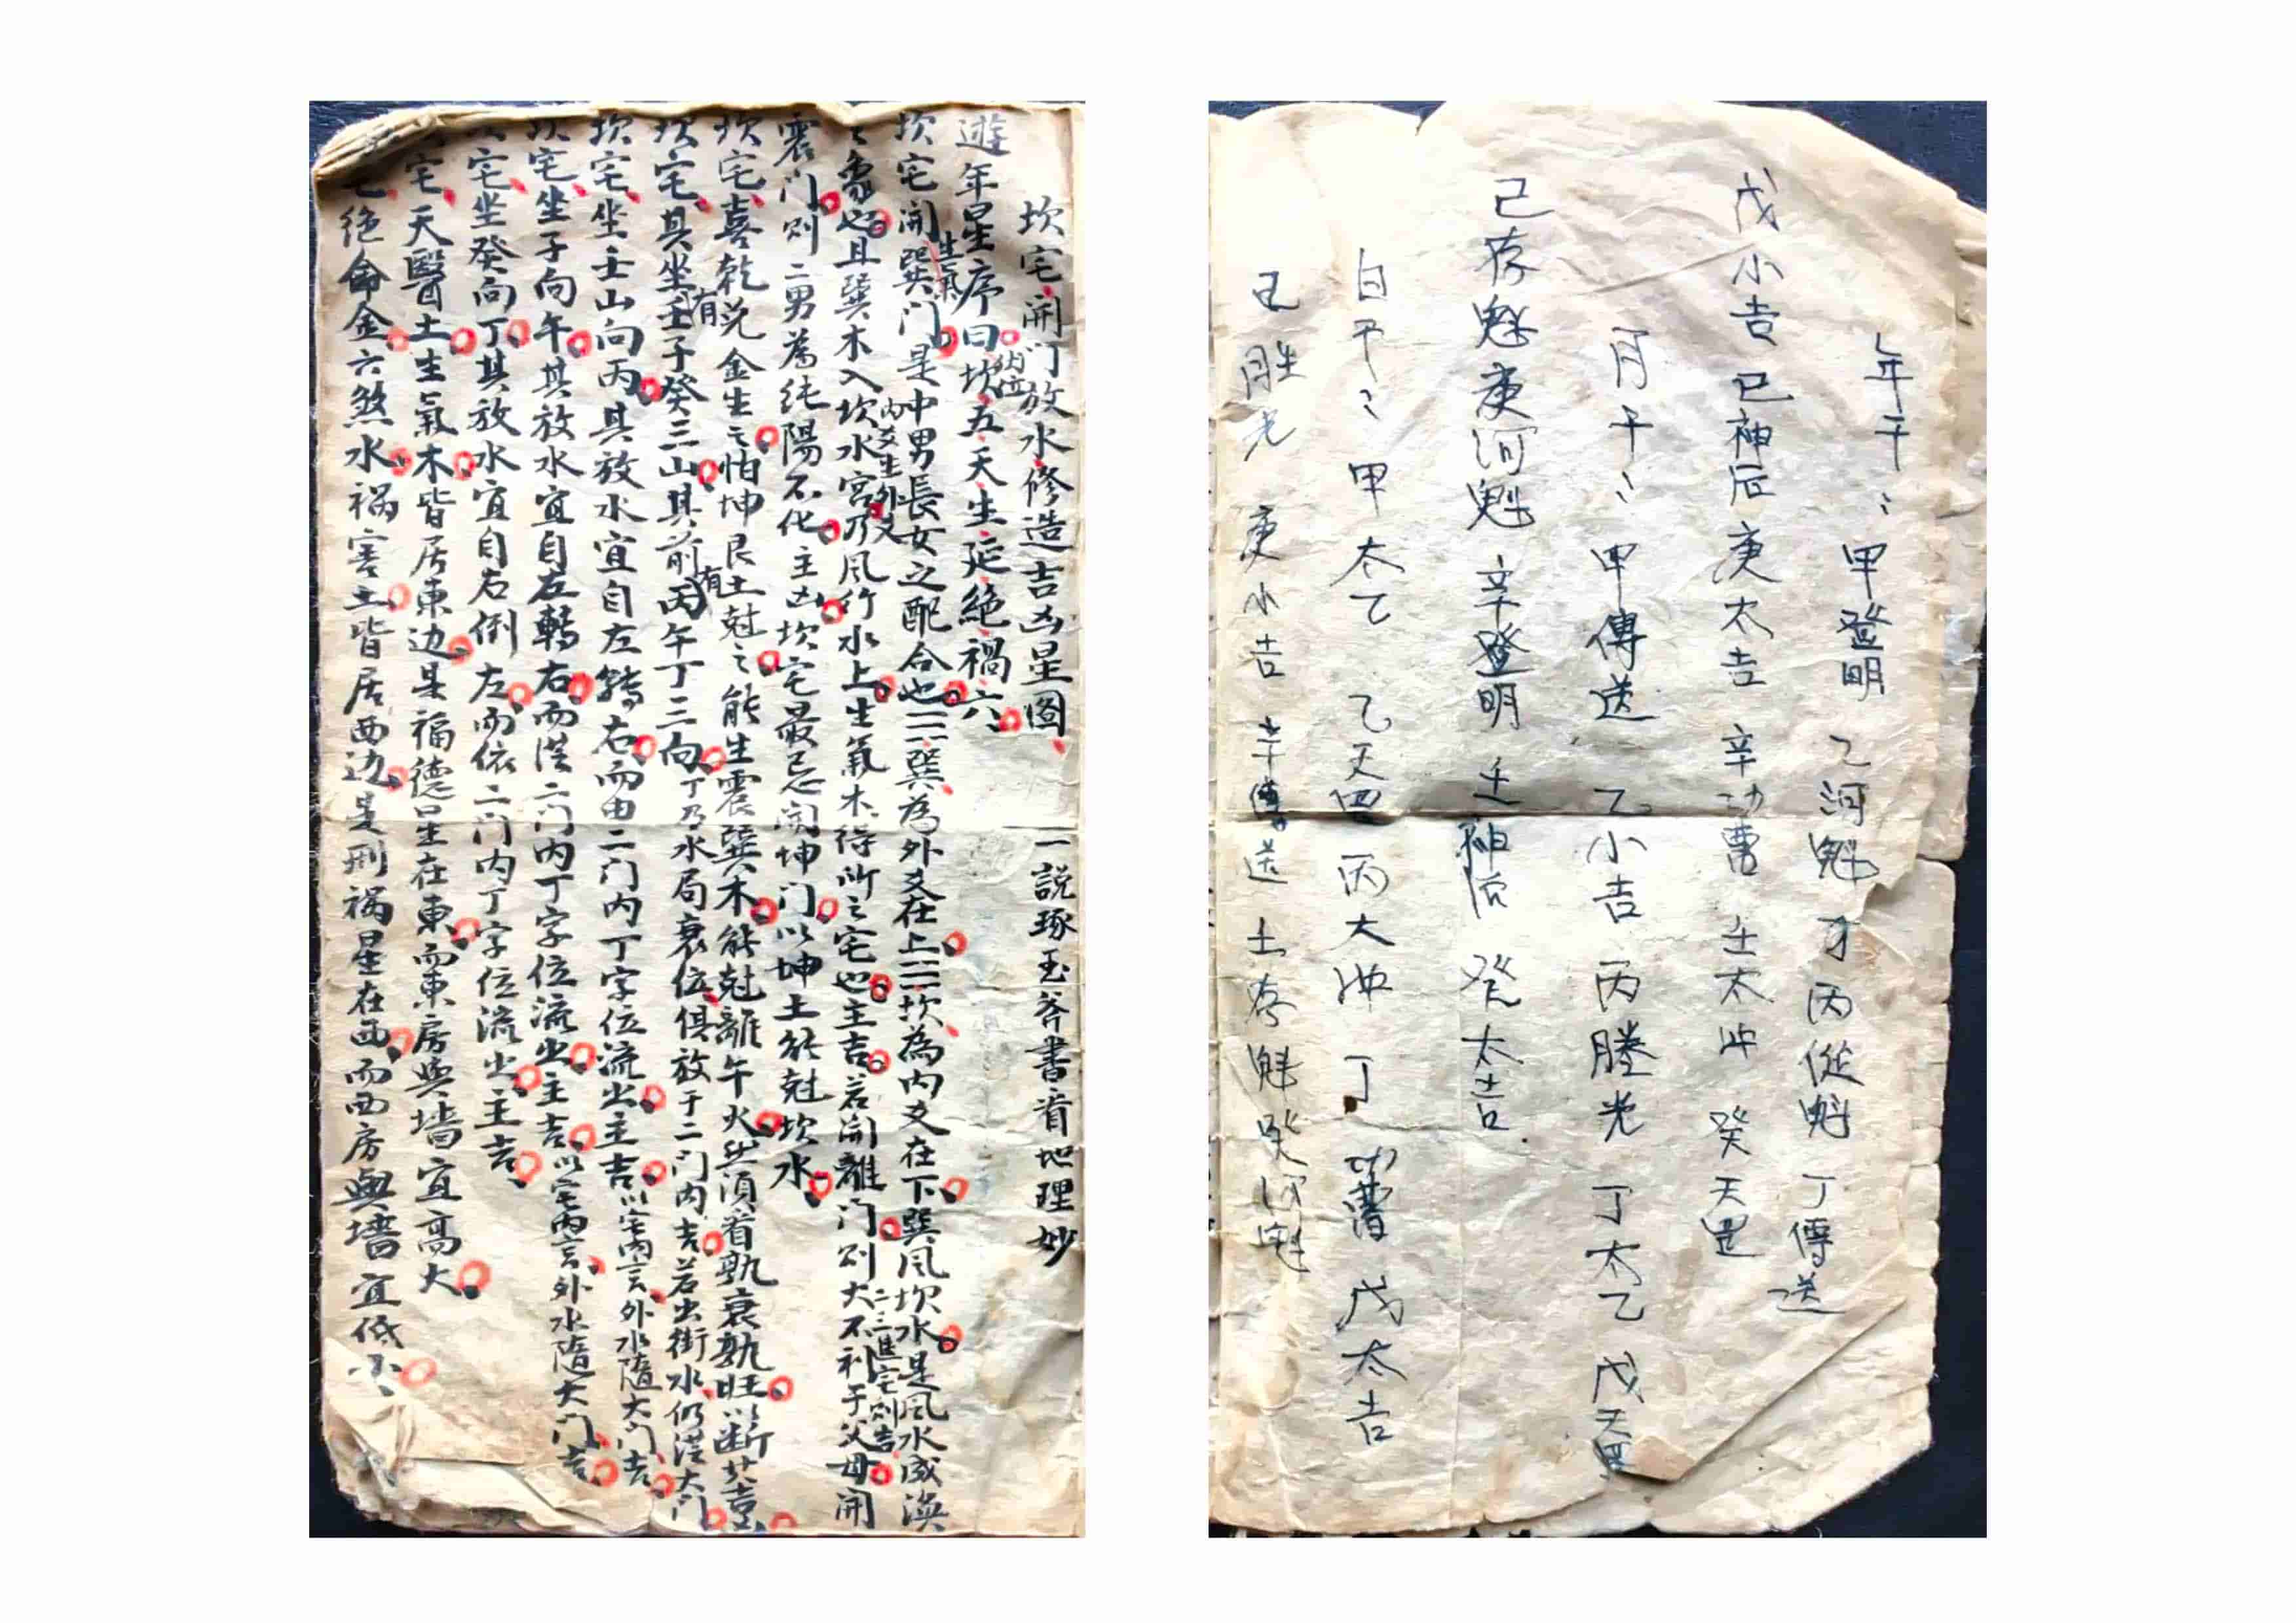 年干〻甲登明 乙河魁 才丙從魁 丁傳送
戊小吉 己神后 庚太吉 辛功曹 壬太冲 癸天罡
月干〻甲傳送 乙小吉 丙勝光 丁太乙 戊天罡
己存魁 庚河魁 辛登明 壬神后 癸太吉
白干〻甲太乙 乙天罡 丙大冲 丁功曹 戊太吉
胜光 庚小吉 辛傳送 土存魁 癸河魁
坎宅開门放水修造吉凶星图 一說琢玉斧書首地理妙
遊年星序曰坎五天生延絕禍六
坎宅開巽门是中男長女之配合也☴巽為外爻在上☵坎為内爻在下巽风坎水是风水成渙
生氣
之象也且巽木入坎水宮乃风行水上生氣木得所之宅也主吉若開離门则大不利于父母開
内爻生外爻
二三進宅则吉
震门则二男為純陽不化主凶坎宅最忌開坤门以坤土能尅坎水
坎宅喜乾兑金生之怕坤艮土尅之能生震巽木能尅離午火然須看孰衰孰旺以断其吉
坎宅其坐壬子癸三山其前丙午丁三向丁乃水局衰位俱放于二门内吉若出街水仍從大门
有
有
坎宅坐壬山向丙其放水宜自左轉右而由二门内丁字位流出主吉以宅内言外水隨大门吉
坎宅坐子向午其放水宜自左轉右而從二门内丁字位流出主吉以宅内言外水隨大门吉
宅坐癸向丁其放水宜自右倒左而依二门内丁字位流出主吉
宅天醫土生氣木皆居東边是福德星在東而東房與墙宜高大
宅絕命金六煞水禍害土皆居西边是刑禍星在西而西房與墻宜低小